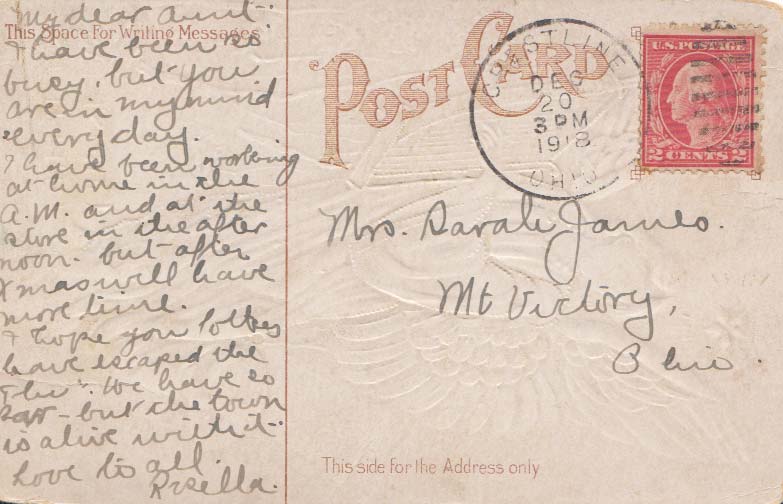 My dear Aunt:
This Space For Writing Messages
I have been so
busy, but you
are in my mind
every day.
I have been working
at home in the
A.M. and at the
store in the after
noon. but after
Xmas will have
more time.
I hope you folkes
have escaped the
"Flu". We have so
far - but the town
is alive with it.
Love to all.
Rosella.
POST CARD
CRESTLINE
DEC
20
3 PM
1918
OHIO
U.S. POSTAGE
2 CENTS 2
Mrs. Sarah James.
Mt Victory,
Ohio.
This side for the Address only